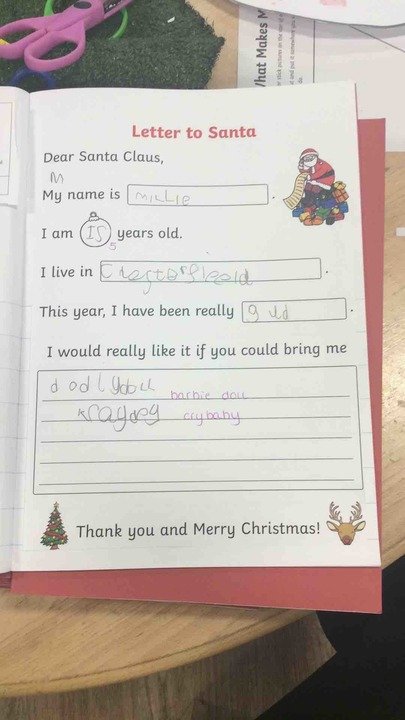 What Makes M
Letter to Santa
Dear Santa Claus,
M
My name is millie.
I am 15 years old.
5
I live in Chesterfleeld.
This year, I have been really gud.
I would really like it if you could bring me
barbie doll
crybaby
Thank you and Merry Christmas!